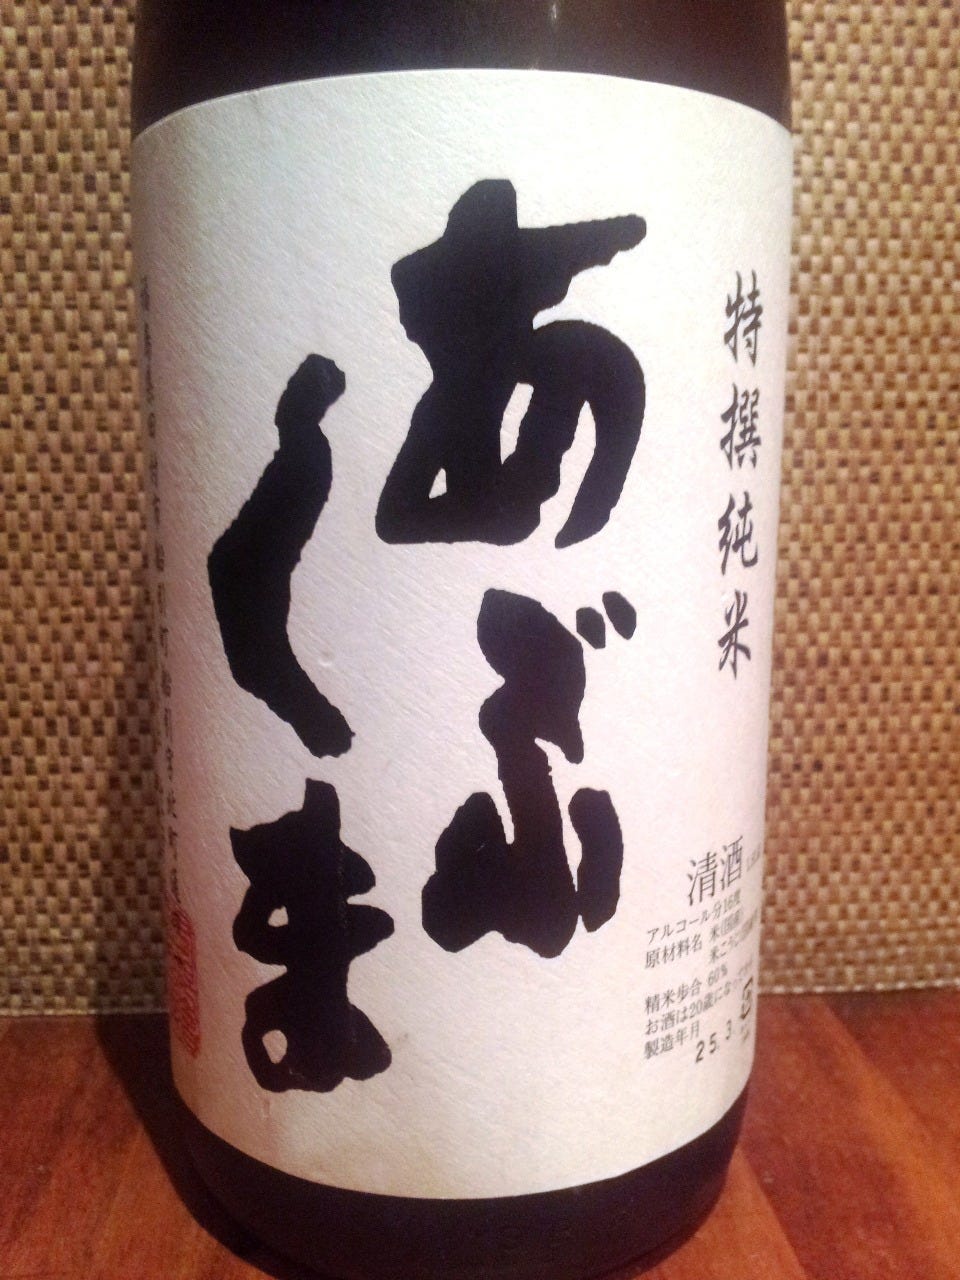 特撰純米
あぶ
くま
清酒
アルコール分16度
原材料名 米(国産)
米こうじ
精米歩合 60%
お酒は20歳になって
製造年月
25.3.